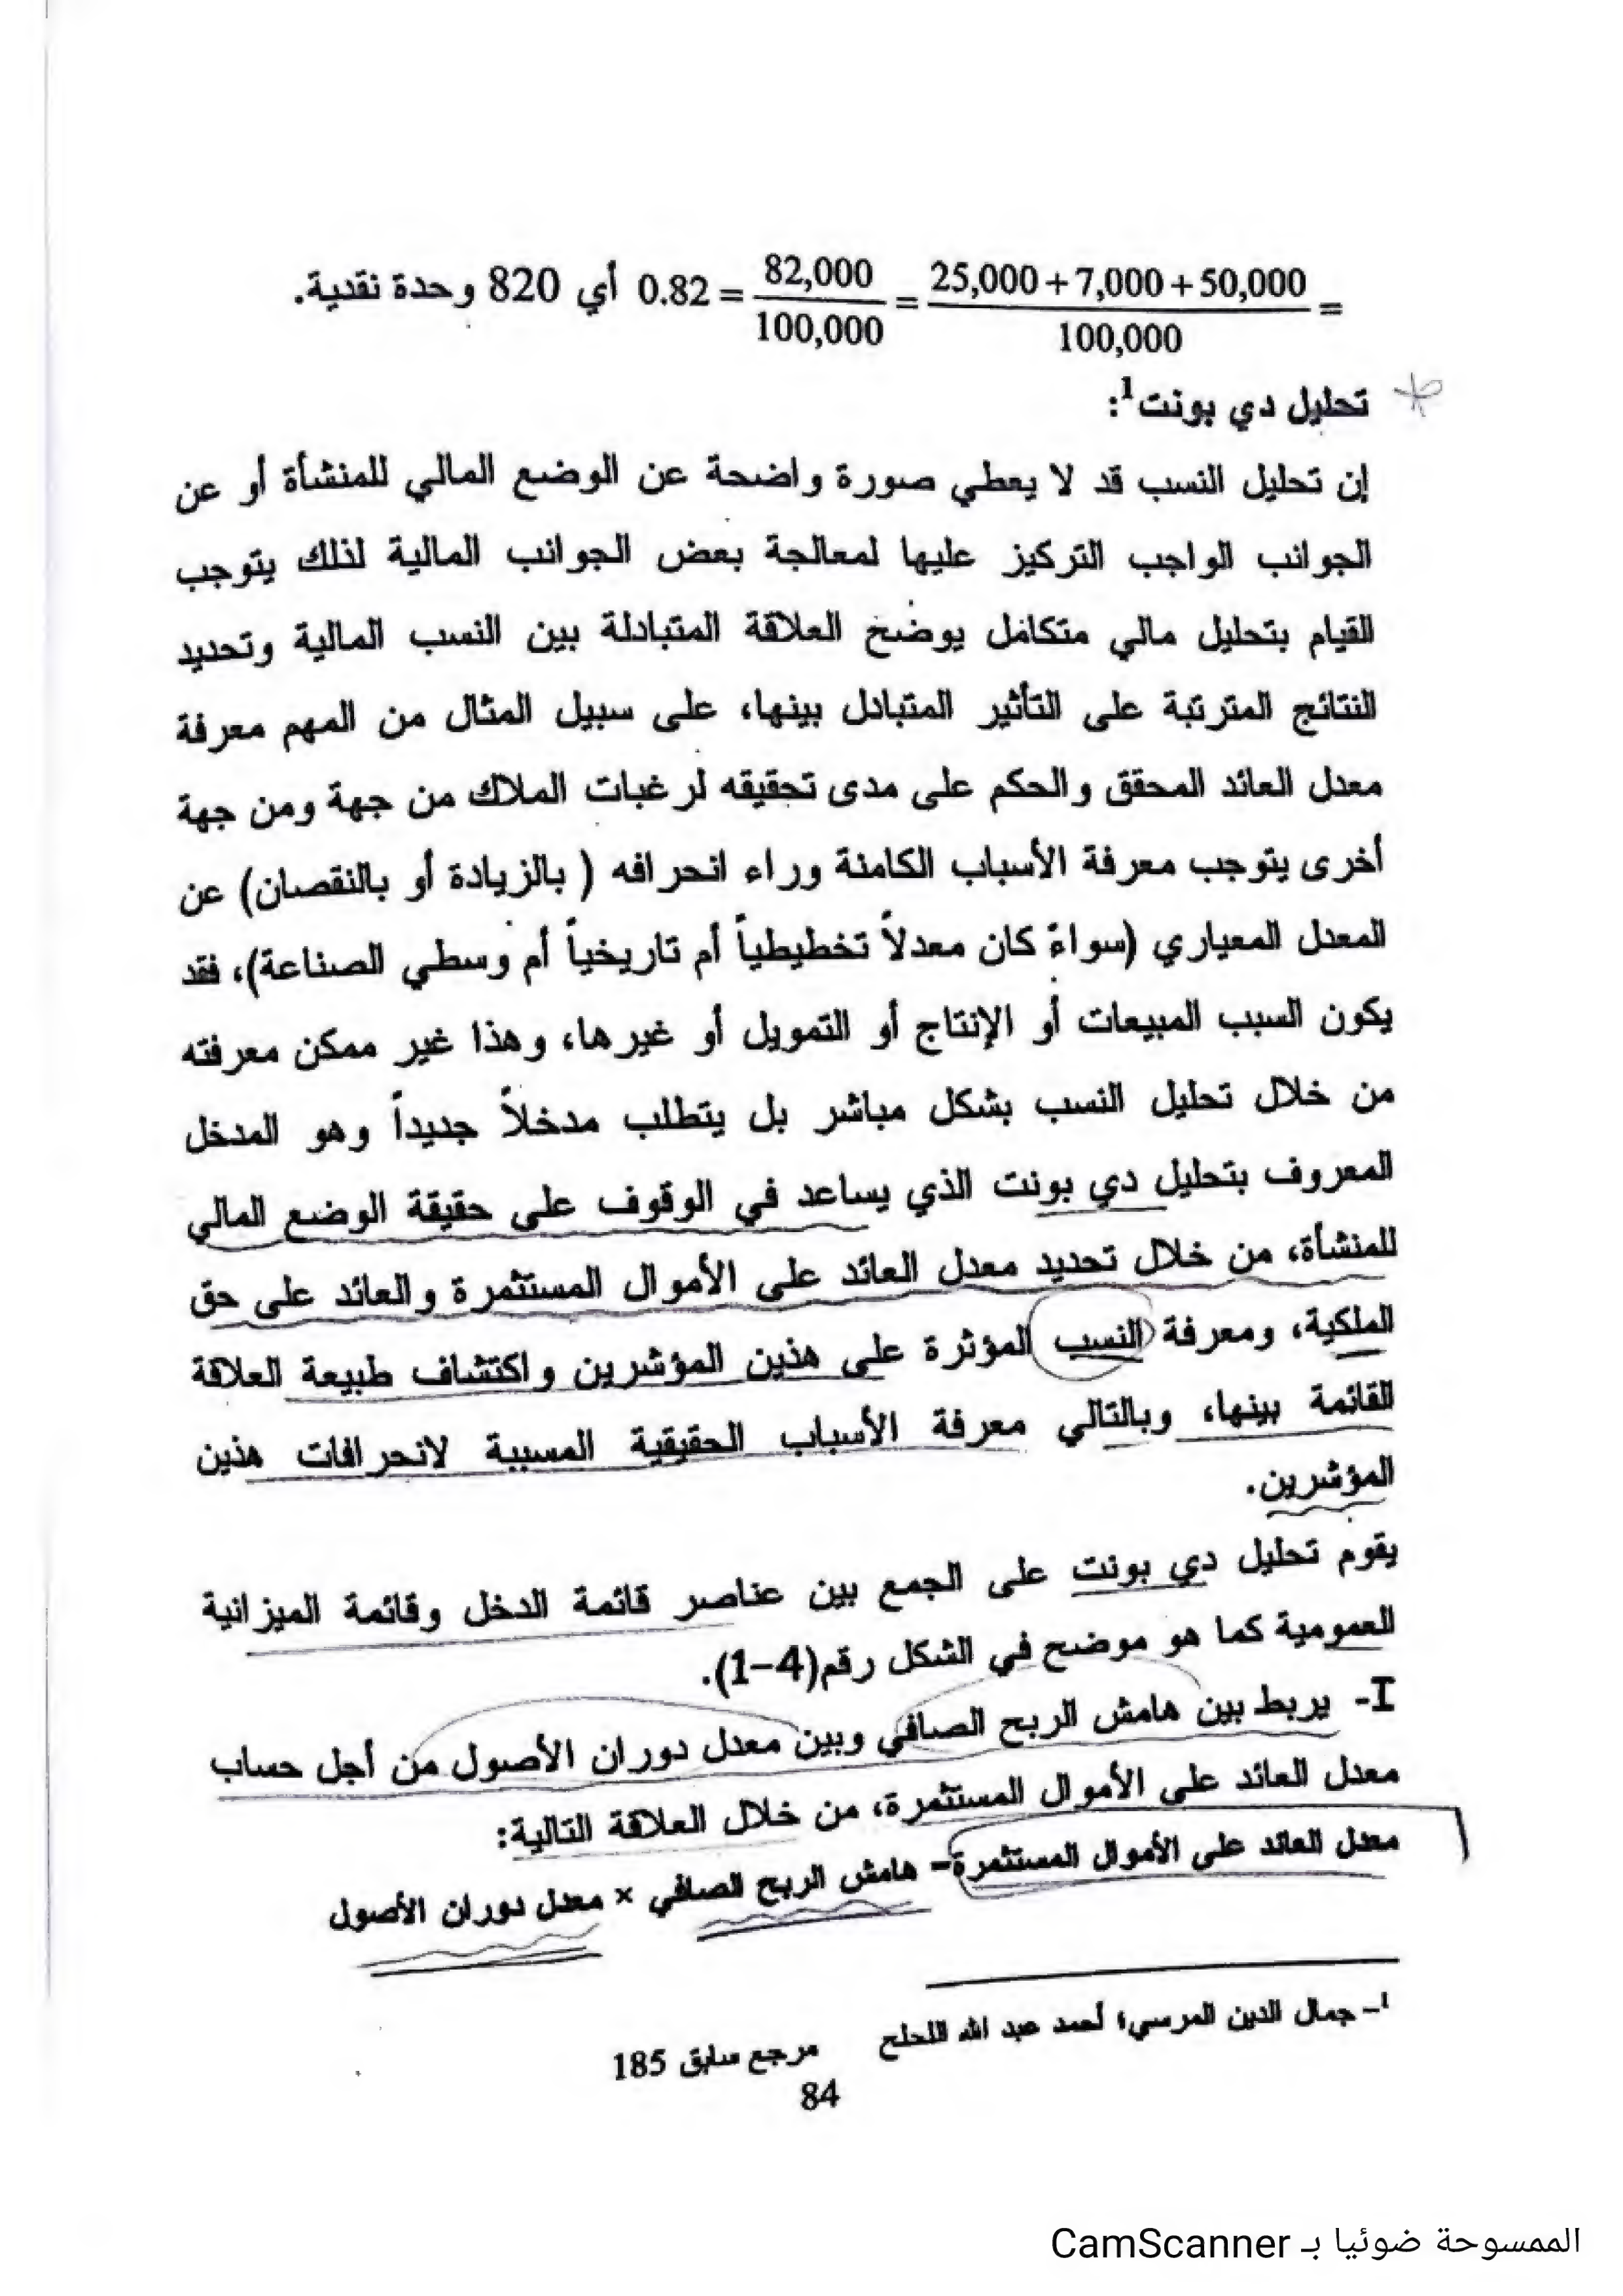 = 25,000+7,000+50,000 / 100,000 = 82,000 / 100,000 = 0.82 أي 820 وحدة نقدية.
تحليل دي بونت1:
إن تحليل النسب قد لا يعطي صورة واضحة عن الوضع المالي للمنشأة أو عن
الجوانب الواجب التركيز عليها لمعالجة بعض الجوانب المالية لذلك يتوجب
القيام بتحليل مالي متكامل يوضح العلاقة المتبادلة بين النسب المالية وتحديد
النتائج المترتبة على التأثير المتبادل بينها، على سبيل المثال من المهم معرفة
معدل العائد المحقق والحكم على مدى تحقيقه لرغبات الملاك من جهة ومن جهة
أخرى يتوجب معرفة الأسباب الكامنة وراء انحرافه ( بالزيادة أو بالنقصان) عن
المعدل المعياري (سواءً كان معدلاً تخطيطياً أم تاريخياً أم وسطي الصناعة)، فقد
يكون السبب المبيعات أو الإنتاج أو التمويل أو غيرها، وهذا غير ممكن معرفته
من خلال تحليل النسب بشكل مباشر بل يتطلب مدخلاً جديداً وهو المدخل
المعروف بتحليل دي بونت الذي يساعد في الوقوف على حقيقة الوضع المالي
للمنشأة، من خلال تحديد معدل العائد على الأموال المستثمرة والعائد على حق
الملكية، ومعرفة النسب المؤثرة على هذين المؤشرين واكتشاف طبيعة العلاقة
القائمة بينها، وبالتالي معرفة الأسباب الحقيقية المسببة لانحرافات هذين
المؤشرين.
يقوم تحليل دي بونت على الجمع بين عناصر قائمة الدخل وقائمة الميزانية
العمومية كما هو موضح في الشكل رقم(4-1).
I- يربط بين هامش الربح الصافي وبين معدل دوران الأصول من أجل حساب
معدل العائد على الأموال المستثمرة، من خلال العلاقة التالية:
معدل العائد على الأموال المستثمرة= هامش الربح الصافي × معدل دوران الأصول
1- جمال الدين المرسي؛ أحمد عبد الله اللحلح مرجع سابق 185
84
الممسوحة ضوئيا بـ CamScanner